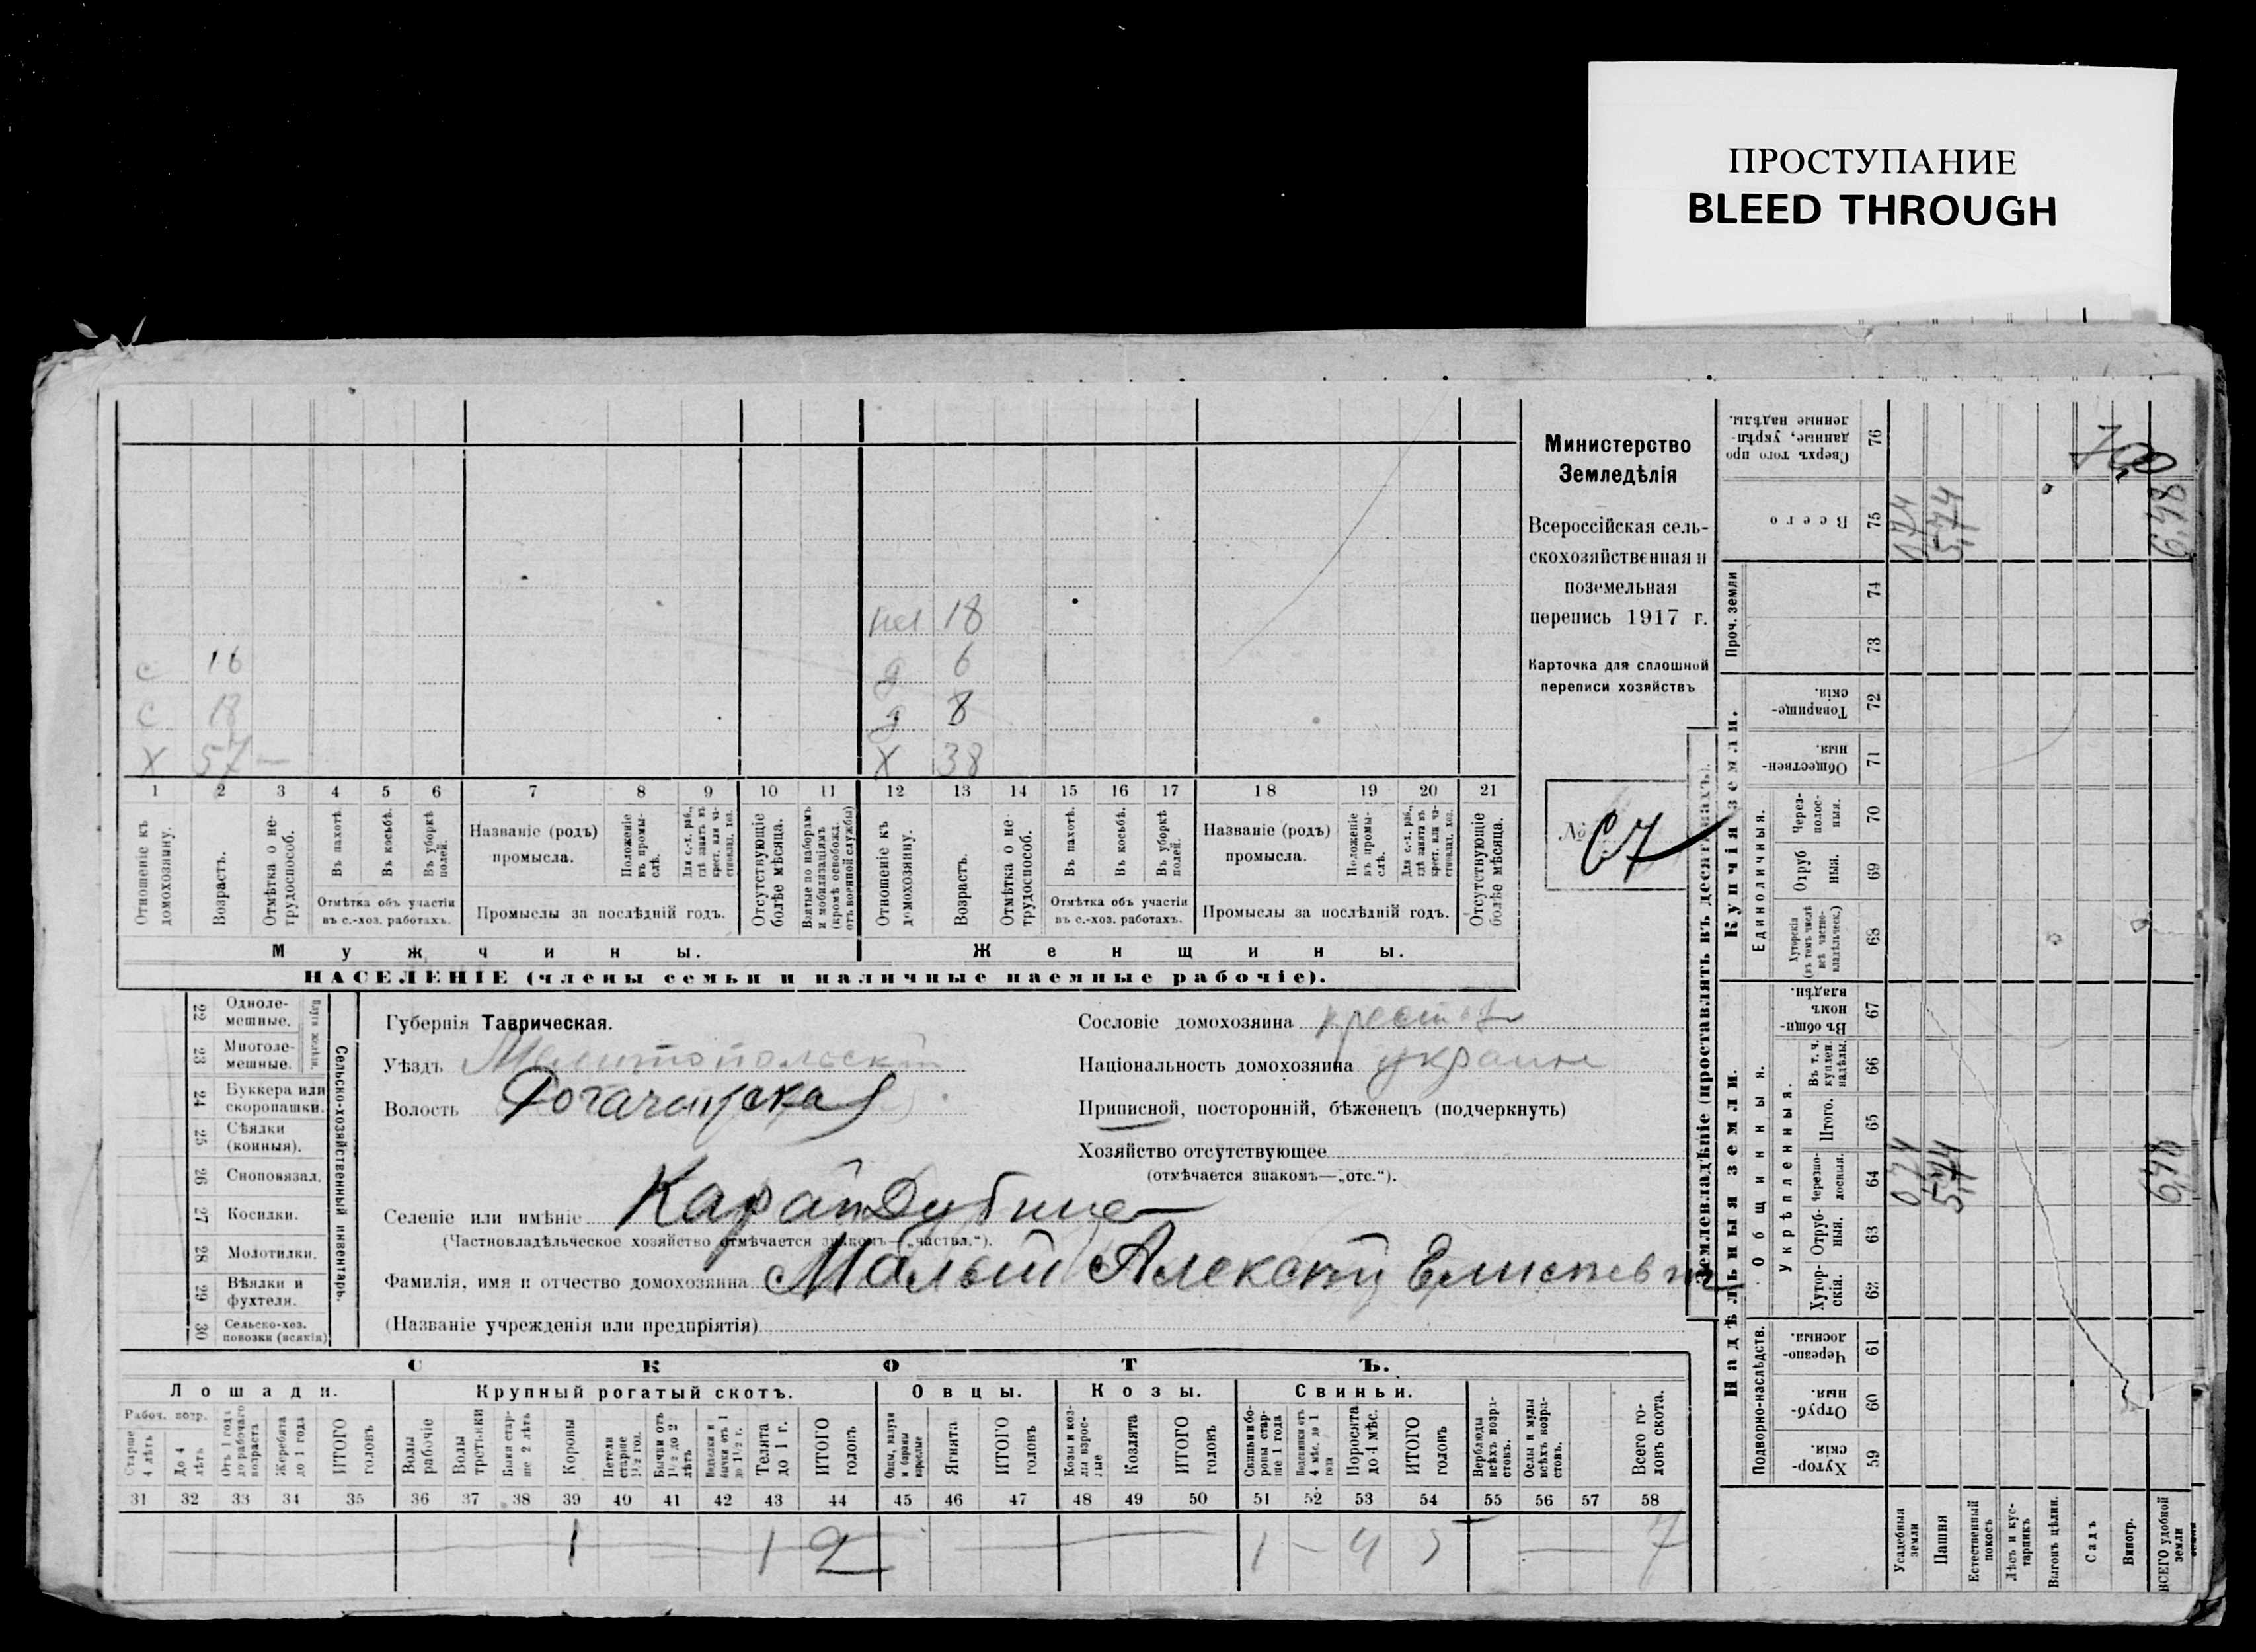 ПРОСТУПАНИЕ
BLEED THROUGH
Министерство
Земледѣлія
Всероссійская сель-
скохозяйственная и
поземельная
перепись 1917 г.
Карточка для сплошной
переписи хозяйствъ
№ 67
18
с 16 д 6
с 18 д 8
Х 57 — Х 38
1 2 3 4 5 6 7 8 9 10 11 12 13 14 15 16 17 18 19 20 21
Отношеніе къ домохозяину.
Возрастъ.
Отмѣтка о не-трудоспособ.
Въ пахотѣ.
Въ косьбѣ.
Въ уборкѣ полей.
Отмѣтка объ участіи
въ с.-хоз. работахъ.
Названіе (родъ)
промысла.
Положеніе въ промы-слѣ.
Для с.-х. раб., гдѣ занятъ въ крест. или ча-
Промыслы за послѣдній годъ.
Отсутствующіе болѣе мѣсяца.
Взятые по наборамъ и мобилизаціямъ (кромѣ освобожд. отъ военной службы)
Отношеніе къ домохозяину.
Возрастъ.
Отмѣтка о не-трудоспособ.
Въ пахотѣ.
Въ косьбѣ.
Въ уборкѣ полей.
Отмѣтка объ участіи
въ с.-хоз. работахъ.
Названіе (родъ)
промысла.
Положеніе въ промы-слѣ.
Для с.-х. раб., гдѣ занята въ крест. или ча-
Промыслы за послѣдній годъ.
Отсутствующіе болѣе мѣсяца.
Мужчины. Женщины.
НАСЕЛЕНІЕ (члены семьи и наличные наемные рабочіе).
Сельско-хозяйственный инвентарь.
22 Одноле-мешные.
23 Многоле-мешные.
24 Буккера или скоропашки.
25 Сѣялки (конныя).
26 Сноповязал.
27 Косилки.
28 Молотилки.
29 Вѣялки и фухтеля.
30 Сельско-хоз. повозки (всякія)
Губернія Таврическая.
Уѣздъ Мелитопольскій
Волость Рогачикская
Селеніе или имѣніе Карай Дубине
(Частновладѣльческое хозяйство отмѣчается знакомъ—„частвл.“).
Фамилія, имя и отчество домохозяина Малый Алексѣй
(Названіе учрежденія или предпріятія)
Сословіе домохозяина
Національность домохозяина украин
Приписной, посторонній, бѣженецъ (подчеркнуть)
Хозяйство отсутствующее
(отмѣчается знакомъ—„отс.“).
СКОТЪ.
Лошади. Крупный рогатый скотъ. Овцы. Козы. Свиньи.
Рабоч. возр.
Старше 4 лѣтъ
До 4 лѣтъ
Отъ 1 года до рабочаго возраста
Жеребята до 1 года
ИТОГО головъ
Волы рабочіе
Волы третьяки
Быки стар-ше 2 лѣтъ
Коровы
Нетели старше 1½ год.
Бычки отъ 1½ до 2 лѣтъ
Телята до 1 г.
ИТОГО головъ
Ягнята
ИТОГО головъ
Козы и коз-лы взрос-лые
Козлята
ИТОГО головъ
Свиньи и бо-ровы стар-ше 1 года
Поросята до 4 мѣс.
ИТОГО головъ
Верблюды всѣхъ возра-стовъ.
Ослы и мулы всѣхъ возра-стовъ.
Всего го-ловъ скота.
31 32 33 34 35 36 37 38 39 40 41 42 43 44 45 46 47 48 49 50 51 52 53 54 55 56 57 58
1 1 2 1 — 4 5 — 7
Землевладѣніе (проставлять въ десятинахъ).
Надѣльныя земли. Купчія земли. Проч. земли
Подворно-наслѣдств.
Общинныя.
Укрѣпленныя.
Единоличныя.
59 Хутор-скія.
60 Отруб-ныя.
61 Черезпо-лосныя.
62 Хутор-скія.
63 Отруб-ныя.
64 Черезпо-лосныя.
65 Итого.
66 Въ т. ч. куплен. надѣлы.
67 Въ общи-номъ владѣн.
68 Хуторскія (въ томъ числѣ всѣ частно-владѣльческ.)
69 Отруб ныя.
70 Через-полос-ныя.
71 Обществен-ныя.
72 Товарище-скія.
73
74
75 Всего
76 Сверхъ того про данные, укрѣп-ленные надѣлы.
Усадебныя земли 0,74 0,74
Пашня 5,74 5,74
Естественный покосъ
Лѣсъ и кус-тарникъ
Выгонъ цѣлин.
Садъ
Виногр.
ВСЕГО удобной земли 6,48 6,48